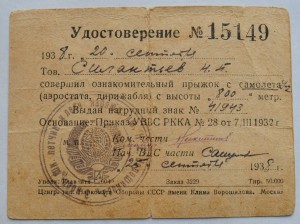 Удостоверение № 15149
1938 г. 20 сентября
Тов. Силантьев Н. П.
совершил ознакомительный прыжок с самолета
(аэростата, дирижабля) с высоты 800 метр.
Выдан нагрудный знак № 41943
Основание: Приказ УВВС РККА № 28 от 7.III 1932 г.
Ком. части
М. П.
Нач. ВС части
25 сентября 1938 г.
Заказ 3220 Тир. 50.000
имени Клим. Ворошилова, Москва